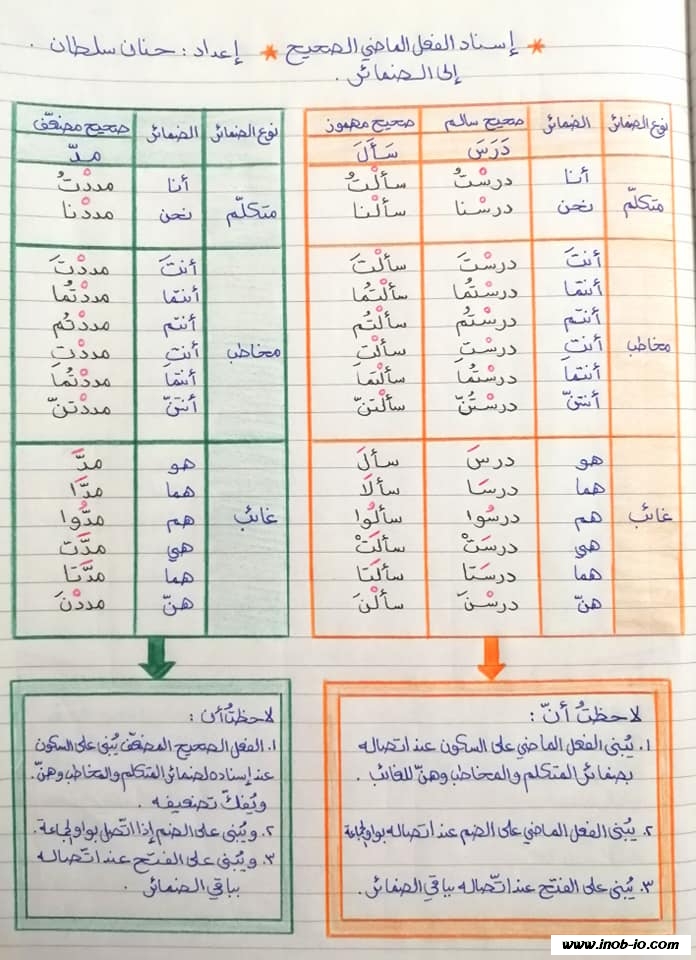 * إسناد الفعل الماضي الصحيح * إعداد : حنان سلطان .
إلى الضمائر .
نوع الضمائر الضمائر صحيح سالم صحيح مهموز
دَرَسَ سَأَلَ
متكلّم
أنا درسْتُ سألْتُ
نحن درسْنا سألْنا
مخاطب
أنتَ درسْتَ سألْتَ
أنتما درسْتُما سألْتُما
أنتم درسْتُم سألْتُم
أنتِ درسْتِ سألْتِ
أنتما درسْتُما سألْتُما
أنتنّ درسْتُنّ سألْتنّ
غائب
هو درسَ سألَ
هما درسَا سألَا
هم درسُوا سألُوا
هي درسَتْ سألَتْ
هما درسَتا سألَتا
هنّ درسْنَ سألْنَ
لاحظتُ أنّ :
١. يُبنى الفعل الماضي على السكون عند اتصاله
بضمائر المتكلم والمخاطب وهنّ للغائب .
٢. يُبنى الفعل الماضي على الضم عند اتصاله بواو الجماعة
٣. يُبنى على الفتح عند اتّصاله بباقي الضمائر .
نوع الضمائر الضمائر صحيح مضعّف
مدّ
متكلّم
أنا مددْتُ
نحن مددْنا
مخاطب
أنتَ مددْتَ
أنتما مددْتُما
أنتم مددْتُم
أنتِ مددْتِ
أنتما مددْتُما
أنتنّ مددْتنّ
غائب
هو مدَّ
هما مدَّا
هم مدُّوا
هي مدَّت
هما مدَّتا
هنّ مددْنَ
لاحظتُ أن :
١. الفعل الصحيح المضعّف يُبنى على السكون
عند إسناده لضمائر المتكلم والمخاطب وهنّ .
ويُفكّ تضعيفه .
٢. ويُبنى على الضم إذا اتّصل بواو الجماعة .
٣. ويُبنى على الفتح عند اتّصاله
بباقي الضمائر .
www.inob-io.com